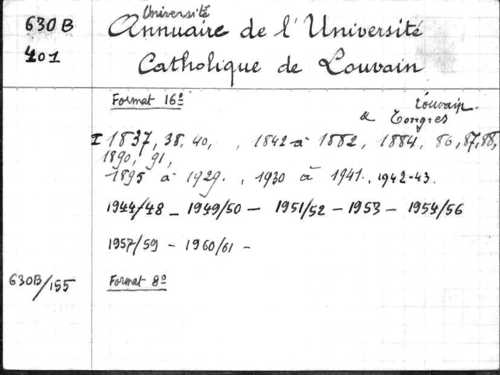 630B
401
Université
Annuaire de l'Université
Catholique de Louvain
Format 16º
Louvain
& Tongres
I 1837, 38, 40, , 1842 à 1882, 1884, 86, 87, 88,
1890, 91,
1895 à 1929. , 1930 à 1941. , 1942-43.
1944/48 _ 1949/50 - 1951/52 - 1953 - 1954/56
1957/59 - 1960/61 -
630B/155
Format 8º